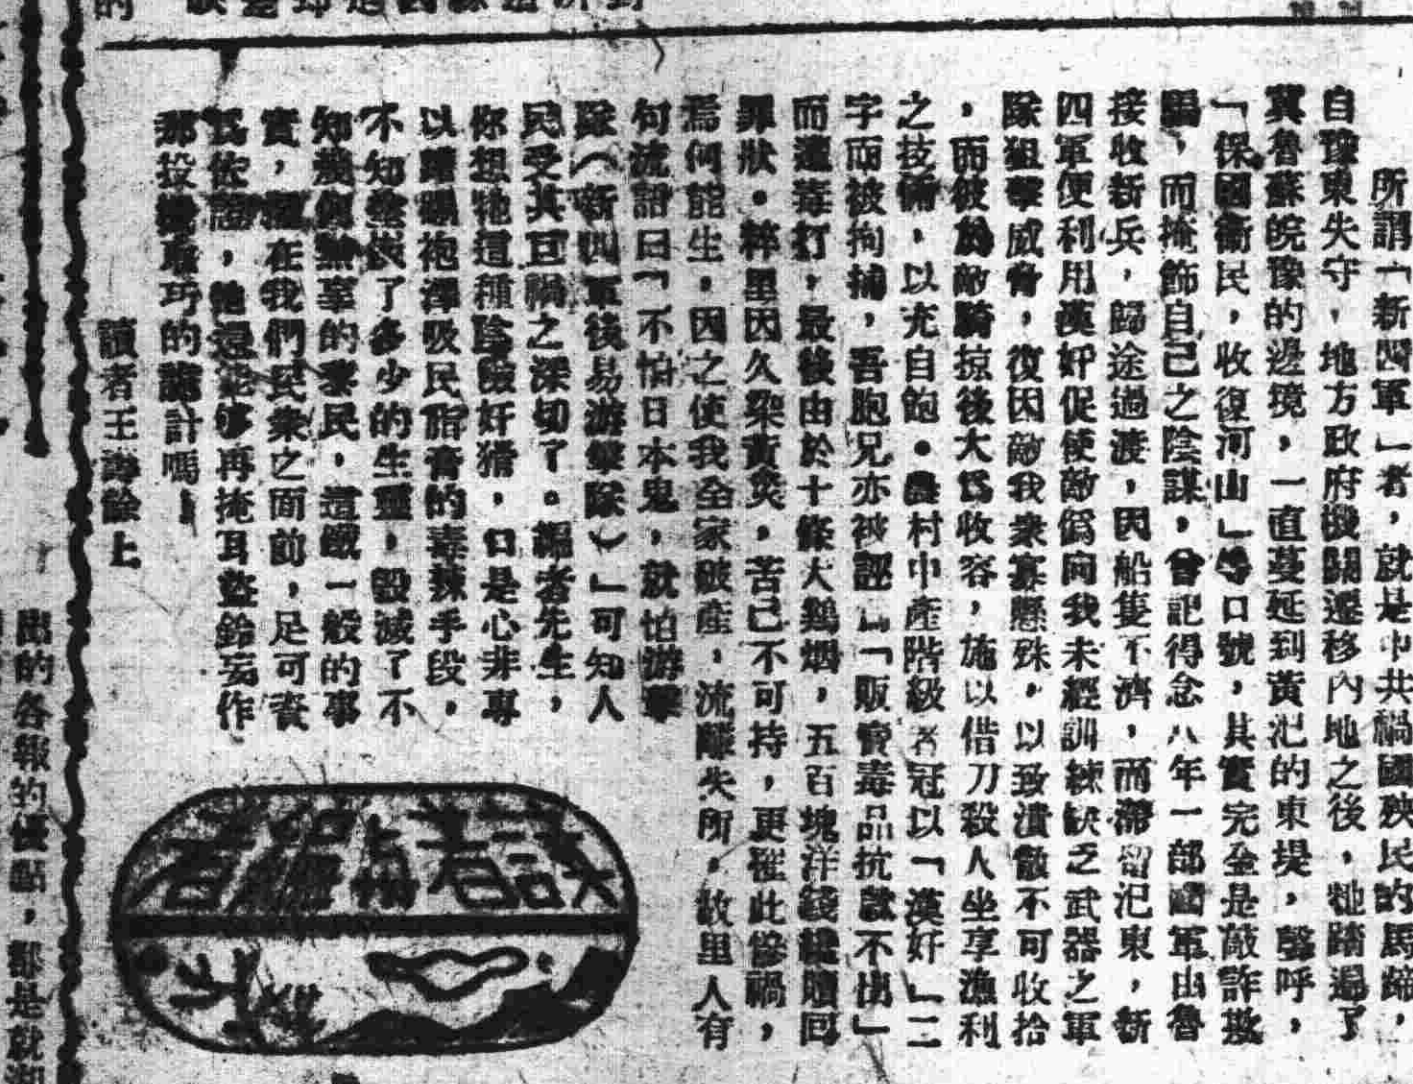 所謂「新四軍」者，就是中共禍國殃民的馬蹄，
自豫東失守，地方政府機關遷移內地之後，牠踏過了
冀魯蘇皖豫的邊境，一直蔓延到黃汜的東堤，聲呼，
「保國衞民，收復河山」等口號，其實完全是敲詐欺
騙，而掩飾自己之陰謀，曾記得念八年一部國軍由魯
接收新兵，歸途過渡，因船隻不濟，而滯留汜東，新
四軍便利用漢奸促使敵僞向我未經訓練缺乏武器之軍
隊狙擊威脅，復因敵我衆寡懸殊，以致潰散不可收拾
，而彼於敵騎掠後大爲收容，施以借刀殺人坐享漁利
之技倆，以充自飽。農村中產階級者冠以「漢奸」二
字而被拘捕，吾胞兄亦被誣「販賣毒品抗欵不出」
而遭毒打，最後由於十條大鷄烟，五百塊洋錢纔贖回
罪狀。粹里因久染黃災，苦己不可持，更罹此慘禍，
焉何能生，因之使我全家破產，流離失所，故里人有
句流語曰「不怕日本鬼，就怕游擊
隊（新四軍後易游擊隊）」可知人
民受其巨禍之深切了。編者先生，
你想牠這種陰險奸猾，口是心非專
以蹧躪袍澤吸民脂膏的毒辣手段，
不知塗炭了多少的生靈，毀滅了不
知幾個無辜的黎民，這鐵一般的事
實，擺在我們民衆之面前，足可資
爲依證，牠還能够再掩耳盜鈴妄作
那投機取巧的詭計嗎！
讀者王
上
讀者與編者
出的各報的優點，都是就